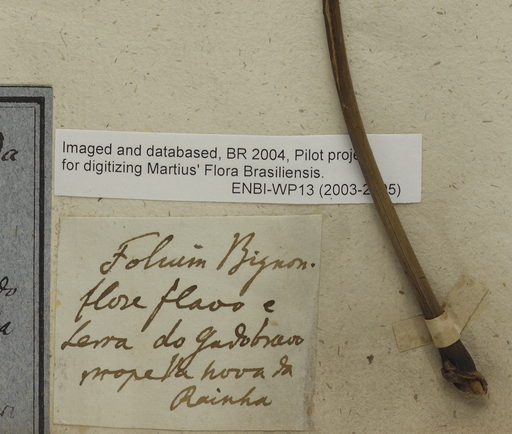 Imaged and databased, BR 2004, Pilot proje
for digitizing Martius' Flora Brasiliensis.
ENBI-WP13 (2003-2005)
Folium Bignon.
flore flavo e
Serra do Gadobravo
prope Va nova da
Rainha